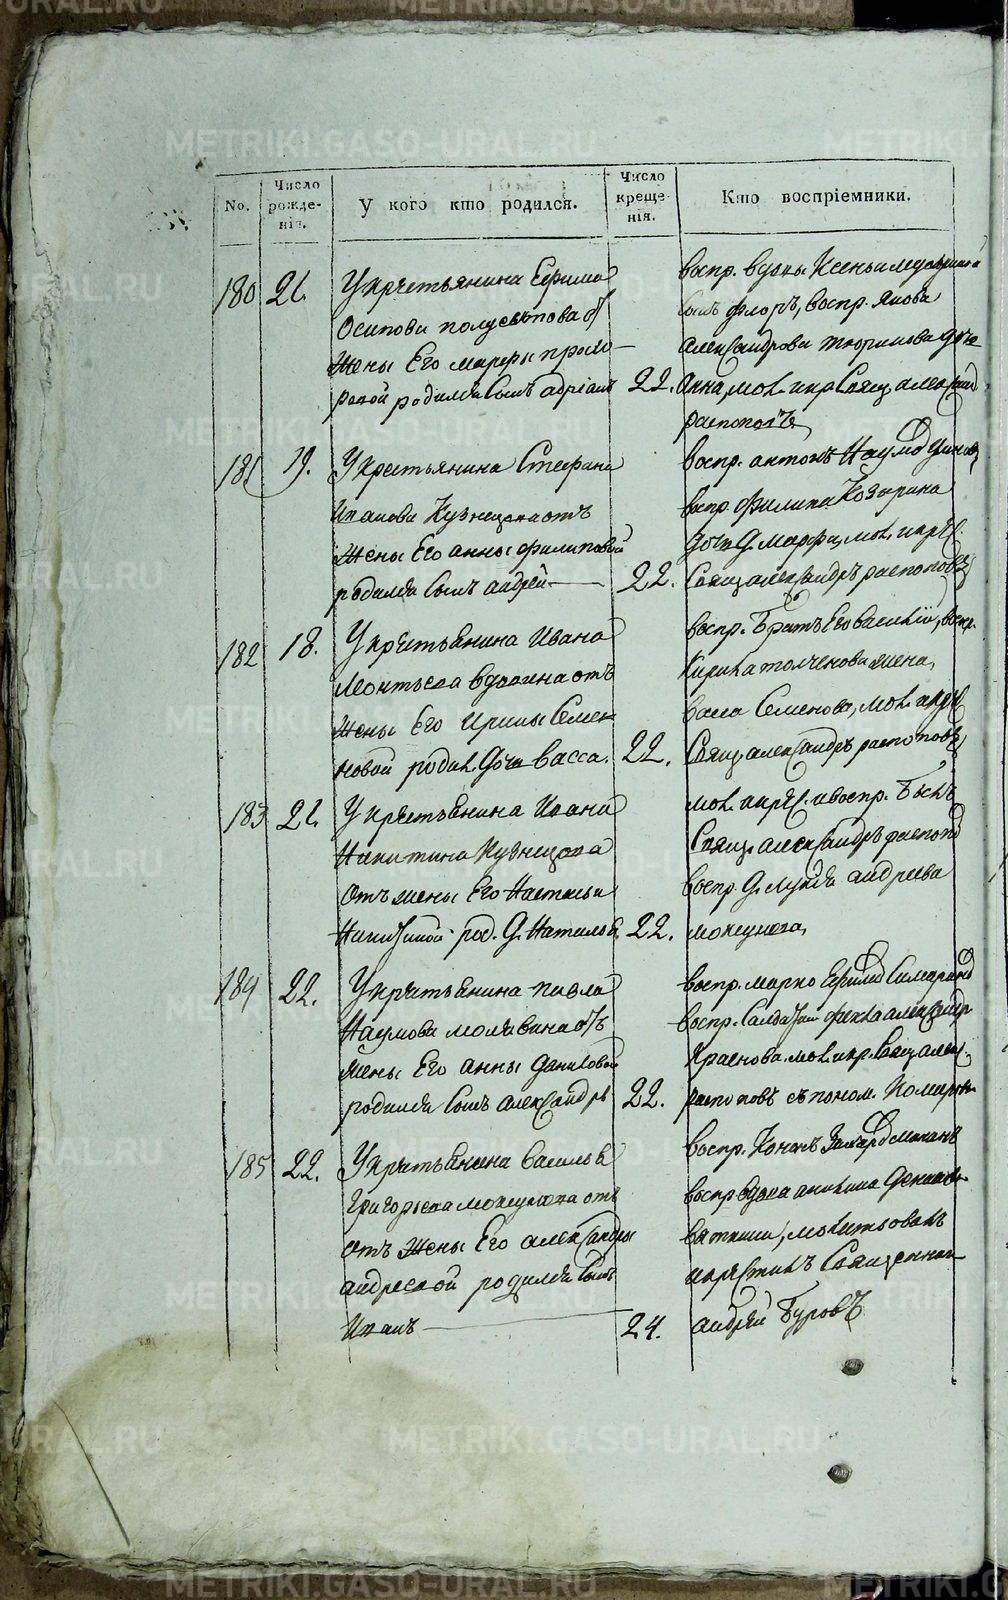 No.
Число рожденія.
У кого кто родился.
Число крещенія.
Кто воспріемники.
180
21.
У крестьянина Ефима
Осипова полу
жены Его марфы
родился сынъ адріанъ
22.
воспр. вдовы Ксеньи
сынъ флоръ, воспр. Якова
александрова дочь
анна, мол. и кр. свящ. александ
распоповъ
181
19.
У крестьянина Стефана
Иванова Кузнецова отъ
жены Его анны филиповой
родился сынъ андрей
22.
воспр. антонъ Наумов
воспр. филипа Козырина
дочь д. марфа, мол. и крес.
свящ. александръ распоповъ
182
18.
У крестьянина Ивана
Леонтьева вдовина отъ
жены Его Ирины Семе
новой родил. дочь васса.
22.
воспр. братъ Его василій, воспр.
Кирила толченова жена,
васса Семенова, мол. и крес
свящ. александръ распоповъ
183
21.
У крестьянина Ивана
Никитина Кузнецова
отъ жены Его Настасьи
Никитиной род. д. Наталья
22.
мол. и крес. и воспр. былъ
свящ. александръ распоп
воспр. д. андреева
184
22.
У крестьянина павла
Наумова отъ
жены Его анны даниловой
родился сынъ александръ
22.
воспр. марко Ефимов
воспр. фекла александр
мол. и кр. свящ. алек.
распоповъ съ поном.
185
22.
У крестьянина василья
Григорьева отъ
отъ жены Его александры
андреевой родился сынъ
Иванъ
24.
воспр. Кононъ Захаров
воспр вдова
молитвовалъ
и крестилъ священник
андрей буровъ
METRIKI.GASO-URAL.RU